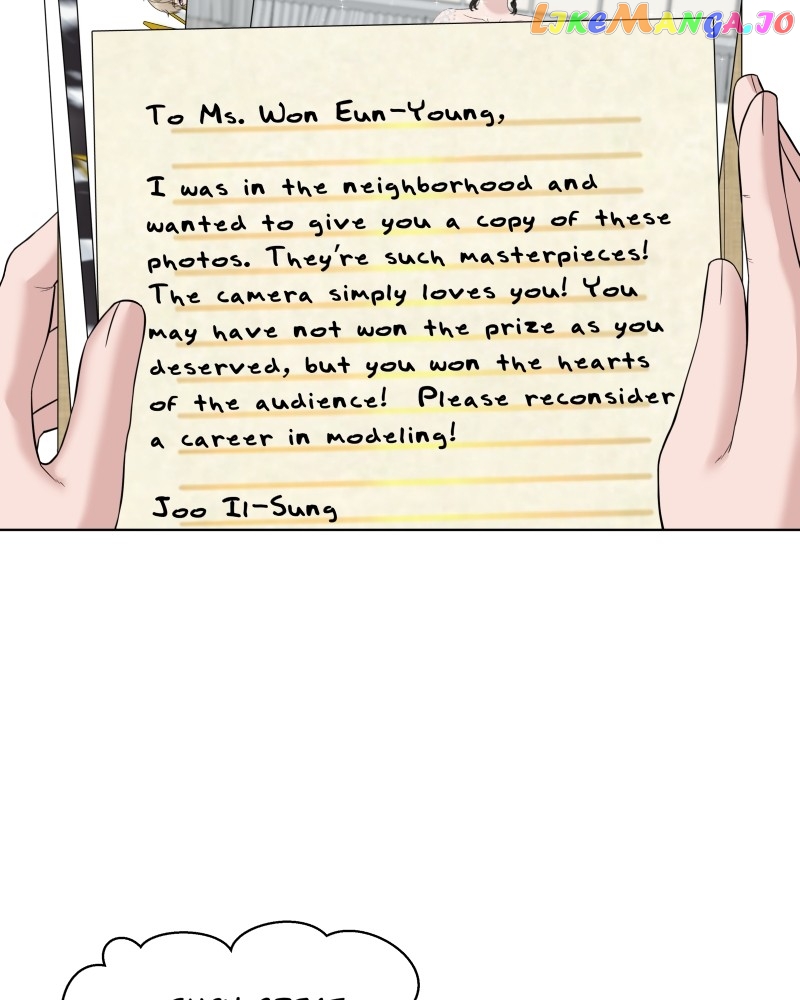 LIKEMANGA.IO
To Ms. Won Eun-Young,
I was in the neighborhood and
wanted to give you a copy of these
photos. They're such masterpieces!
The camera simply loves you! You
may have not won the prize as you
deserved, but you won the hearts
of the audience! Please reconsider
a career in modeling!
Joo Il-Sung